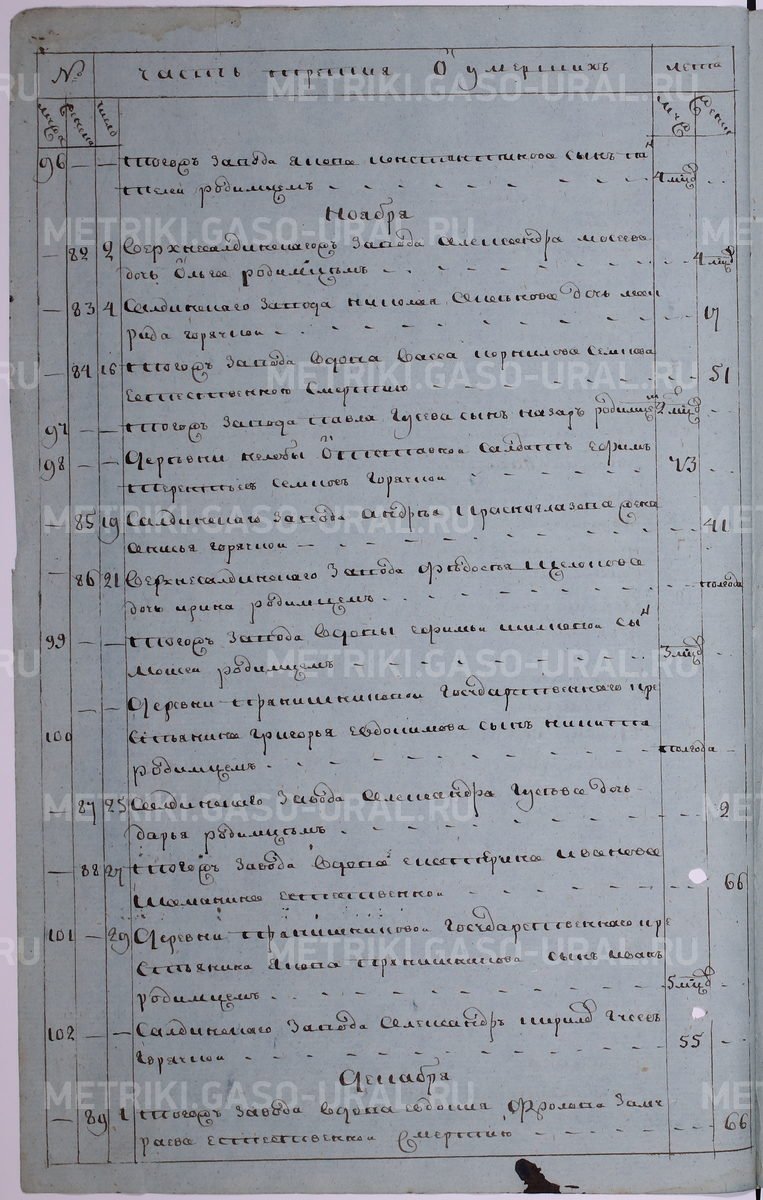 № часть третия О умершихъ лета
мужа женска число мужс женс
96 — — тогожъ завода Якова Константинова сынъ Па
телей родимцемъ 4 мцъ
Ноября
— 82 2 Верхнесалдинскагожъ завода Александра
дочь Ольга родимцъмъ 4 мцъ
— 83 4 Салдинскаго завода Николая дочь
горячкой 17
— 84 16 тогожъ завода вдова Васса Корнилова
Естественною смертию 51
97 — — тогожъ завода Павла Гусева сынъ Назаръ родимцем 2 мцъ
98 — — Деревни отставной салдатъ Ефимъ
Терентьевъ горячкой 73
— 85 19 Салдинскаго завода Андрея Красноглазова жена
Анисья горячкой 41
— 86 21 Верхнесалдинскаго завода Федосья
дочь Ирина родимцемъ полгода
99 — — тогожъ завода вдовы Ефимьи сын
Мокей родимцемъ 3 мцъ
— — Деревни Прянишниковой Государственнаго кре
100 стьянина Григорья Евдокимова сынъ Никита
родимцемъ полгода
— 87 25 Салдинскаго завода Александра Гусева дочь
Дарья родимцъмъ 2
— 88 27 тогожъ завода вдова Екатерина Иванова
Шаманина естественной 66
101 — 29 Деревни Прянишниковой Государственнаго кре
стьянина Якова Прянишникова сынъ Иванъ
родимцемъ 5 мцъ
102 — — Салдинскаго завода Александръ Гусевъ
горячкой 55
Декабря
— 89 1 тогожъ завода вдова Евдокия Фролова
естественной смертию 66
METRIKI.GASO-URAL.RU